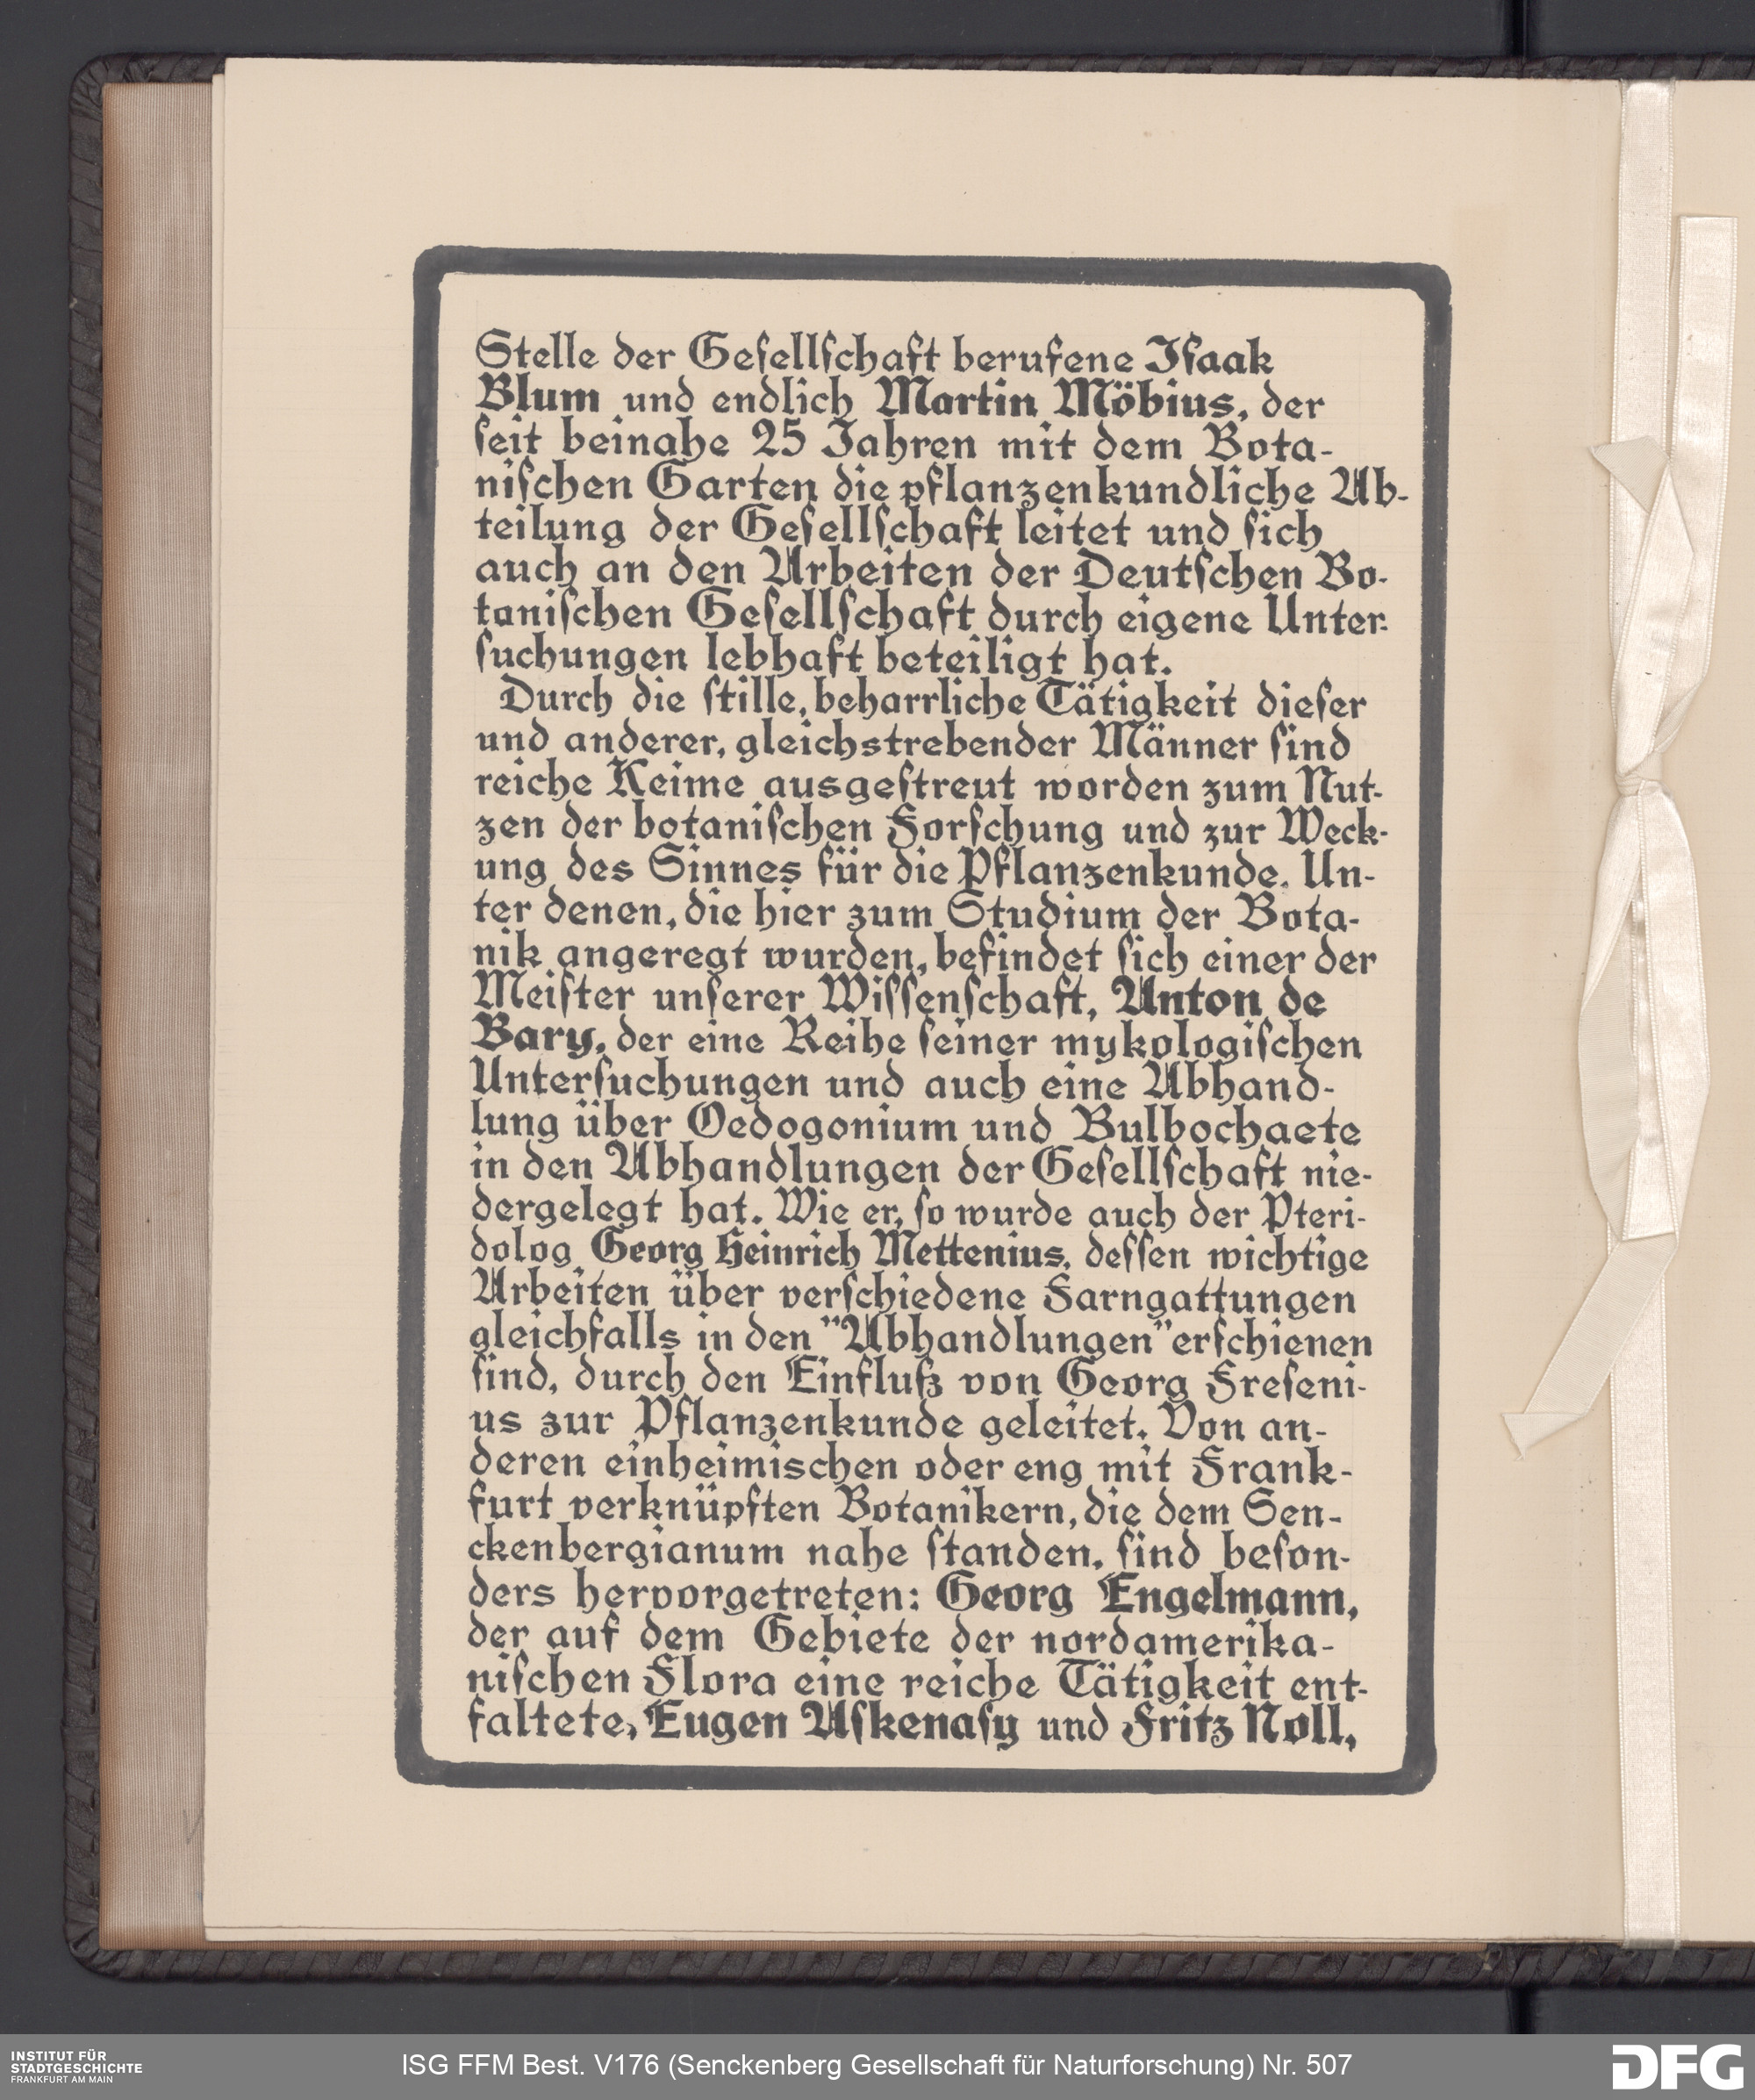 Stelle der Geſellſchaft berufene Iſaak
Blum und endlich Martin Möbius, der
ſeit beinahe 25 Jahren mit dem Bota-
niſchen Garten die pflanzenkundliche Ab-
teilung der Geſellſchaft leitet und ſich
auch an den Arbeiten der Deutſchen Bo-
taniſchen Geſellſchaft durch eigene Unter-
ſuchungen lebhaft beteiligt hat.
Durch die ſtille, beharrliche Tätigkeit dieſer
und anderer, gleichstrebender Männer ſind
reiche Keime ausgeſtreut worden zum Nut-
zen der botaniſchen Forſchung und zur Weck-
ung des Sinnes für die Pflanzenkunde. Un-
ter denen, die hier zum Studium der Bota-
nik angeregt wurden, befindet ſich einer der
Meiſter unſerer Wiſſenſchaft, Anton de
Bary, der eine Reihe ſeiner mykologiſchen
Unterſuchungen und auch eine Abhand-
lung über Oedogonium und Bulbochaete
in den Abhandlungen der Geſellſchaft nie-
dergelegt hat. Wie er, ſo wurde auch der Pteri-
dolog Georg Heinrich Mettenius, deſſen wichtige
Arbeiten über verſchiedene Farngattungen
gleichfalls in den "Abhandlungen" erſchienen
ſind, durch den Einfluß von Georg Freſeni-
us zur Pflanzenkunde geleitet. Von an-
deren einheimischen oder eng mit Frank-
furt verknüpften Botanikern, die dem Sen-
ckenbergianum nahe ſtanden, ſind beſon-
ders hervorgetreten: Georg Engelmann,
der auf dem Gebiete der nordamerika-
niſchen Flora eine reiche Tätigkeit ent-
faltete, Eugen Aſkenaſy und Fritz Noll,
INSTITUT FÜR
STADTGESCHICHTE
FRANKFURT AM MAIN
ISG FFM Best. V176 (Senckenberg Gesellschaft für Naturforschung) Nr. 507
DFG